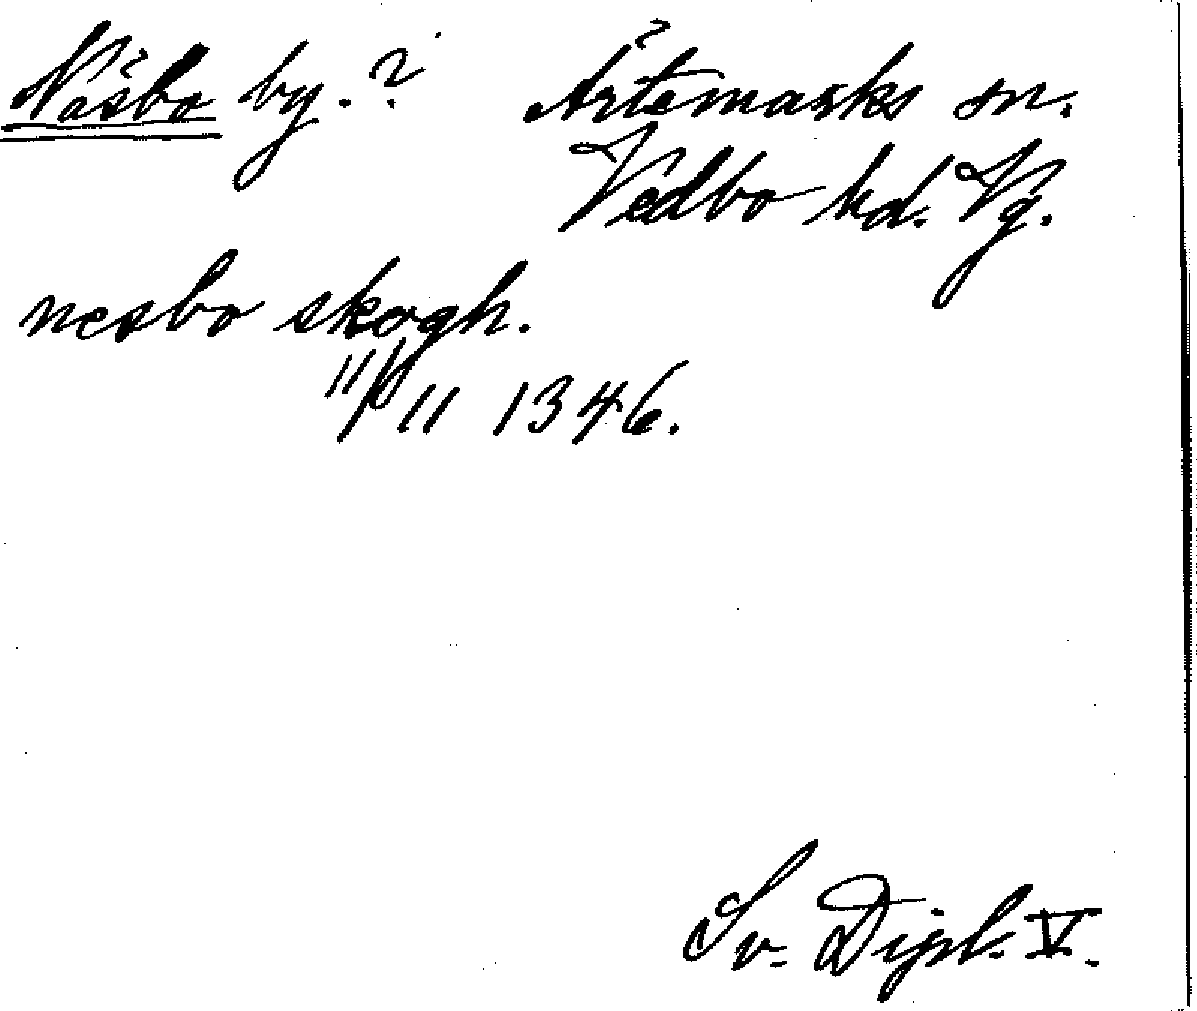 Nåsbo by. ? Ärtemarks sn.
Vedbo hd. Vg.
nesbo skogh.
11/11 1346.
Sv. Dipl. V.